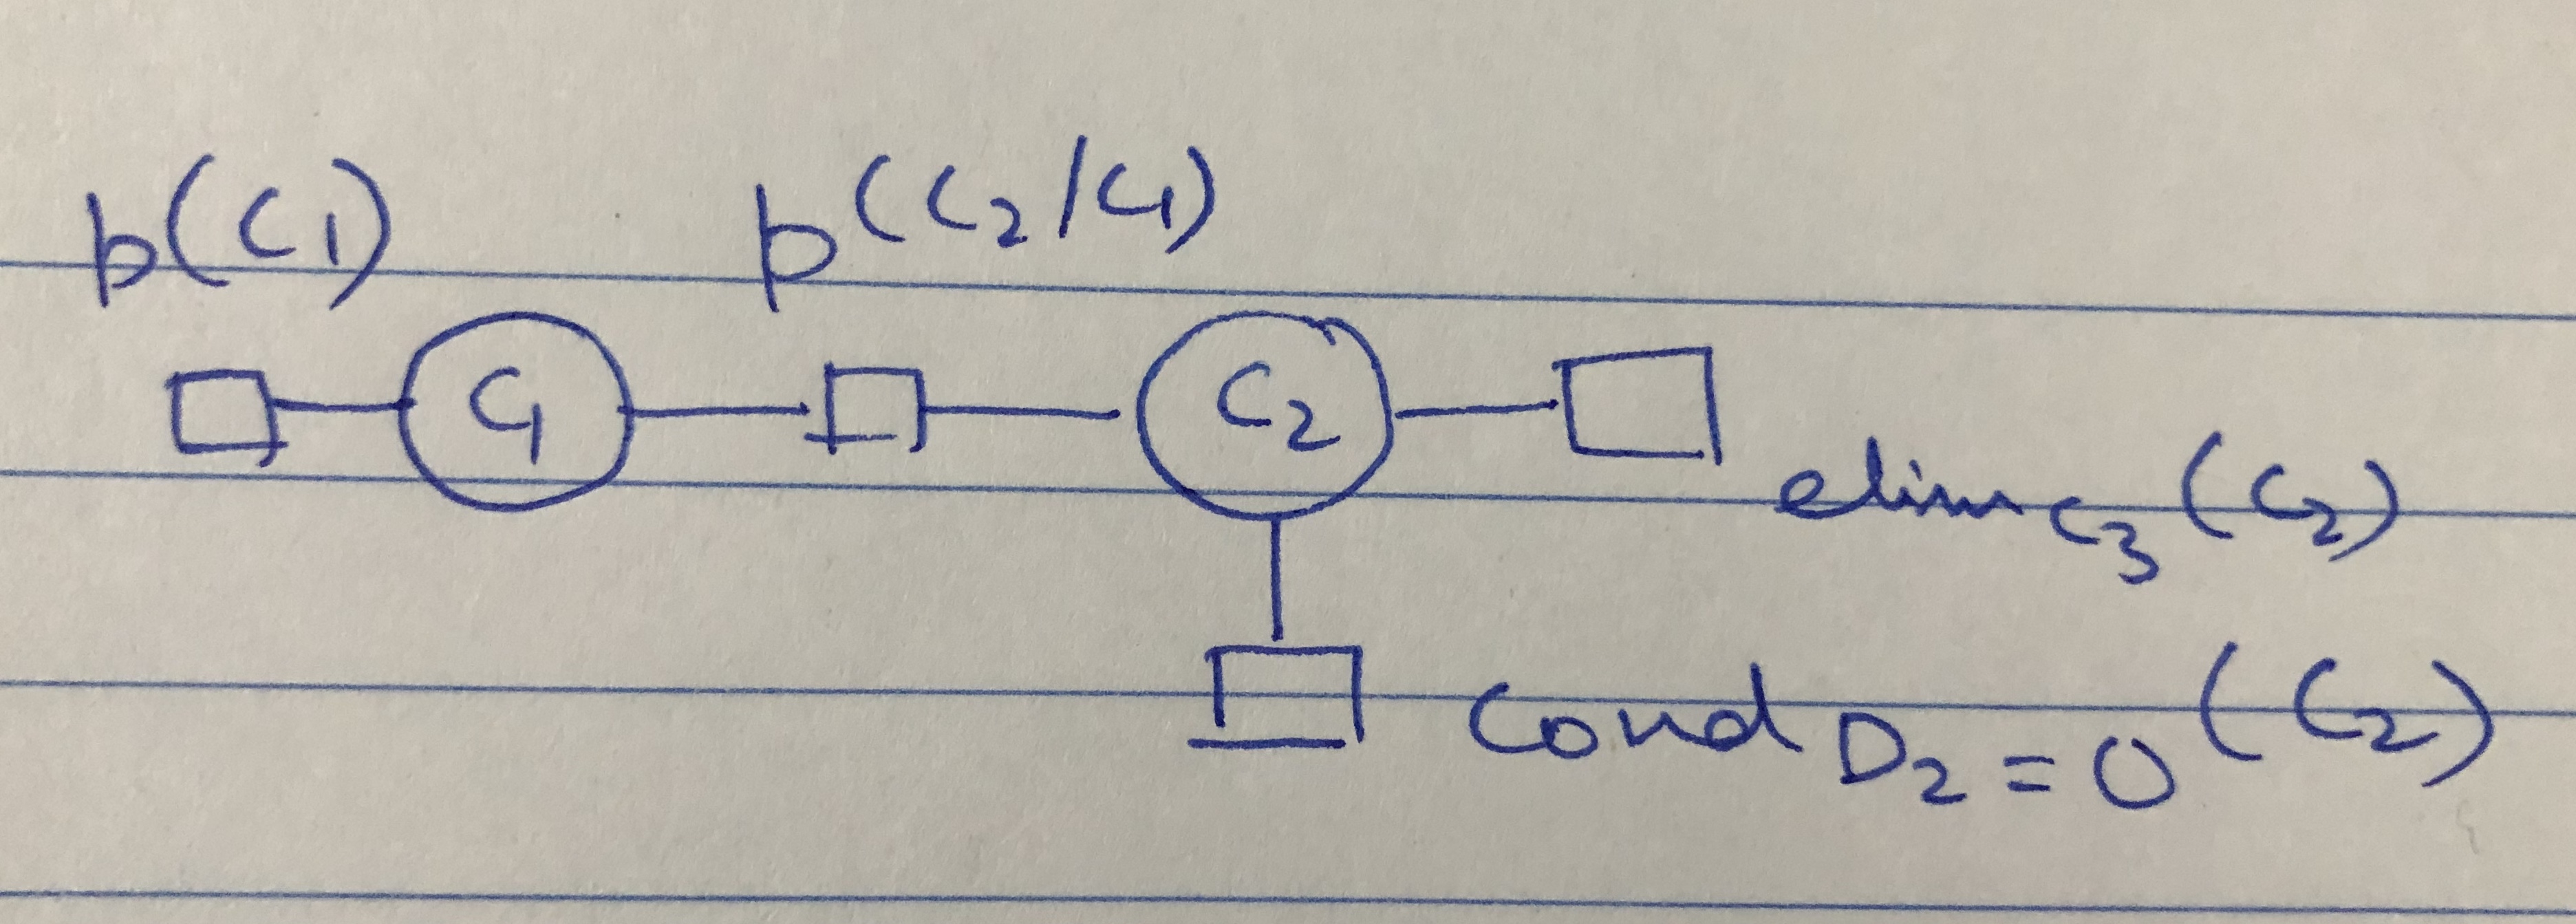 p(C1) p(C2/C1)
C1 C2
elimC3(C2)
CondD2=0(C2)